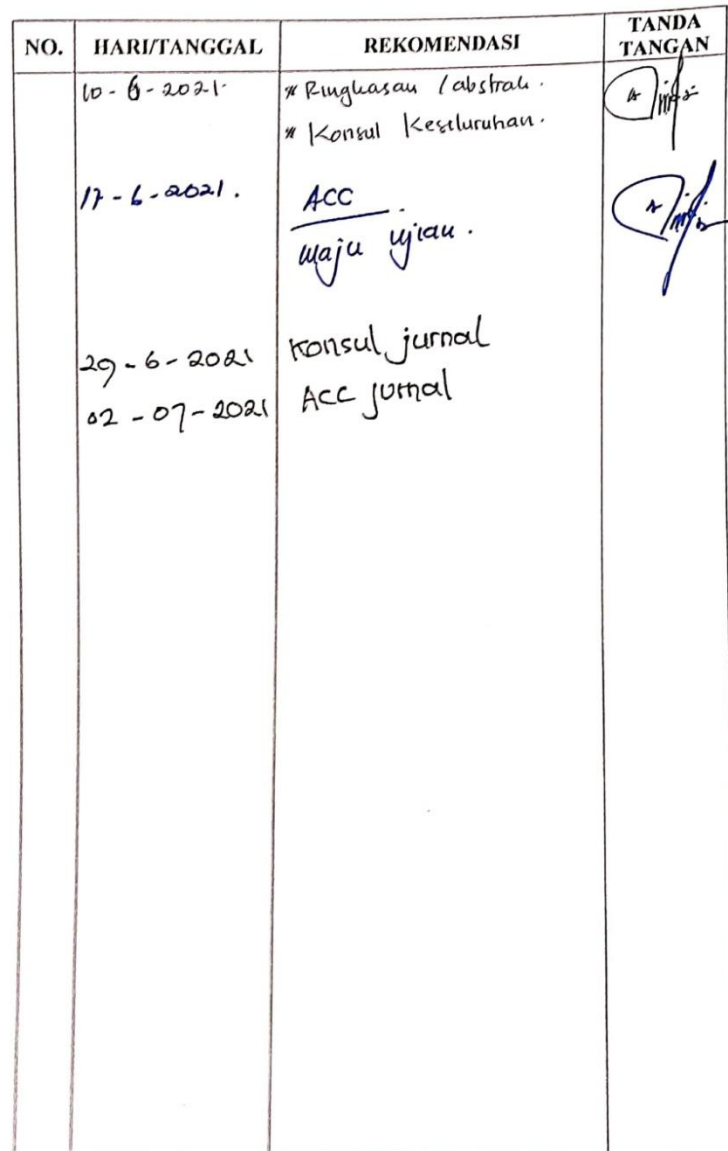 NO. HARI/TANGGAL REKOMENDASI TANDA TANGAN
10-6-2021. * Ringkasan /abstrak.
* Konsul Keseluruhan.
17-6-2021. ACC
maju ujian.
29-6-2021 Konsul jurnal
02-07-2021 ACC jurnal